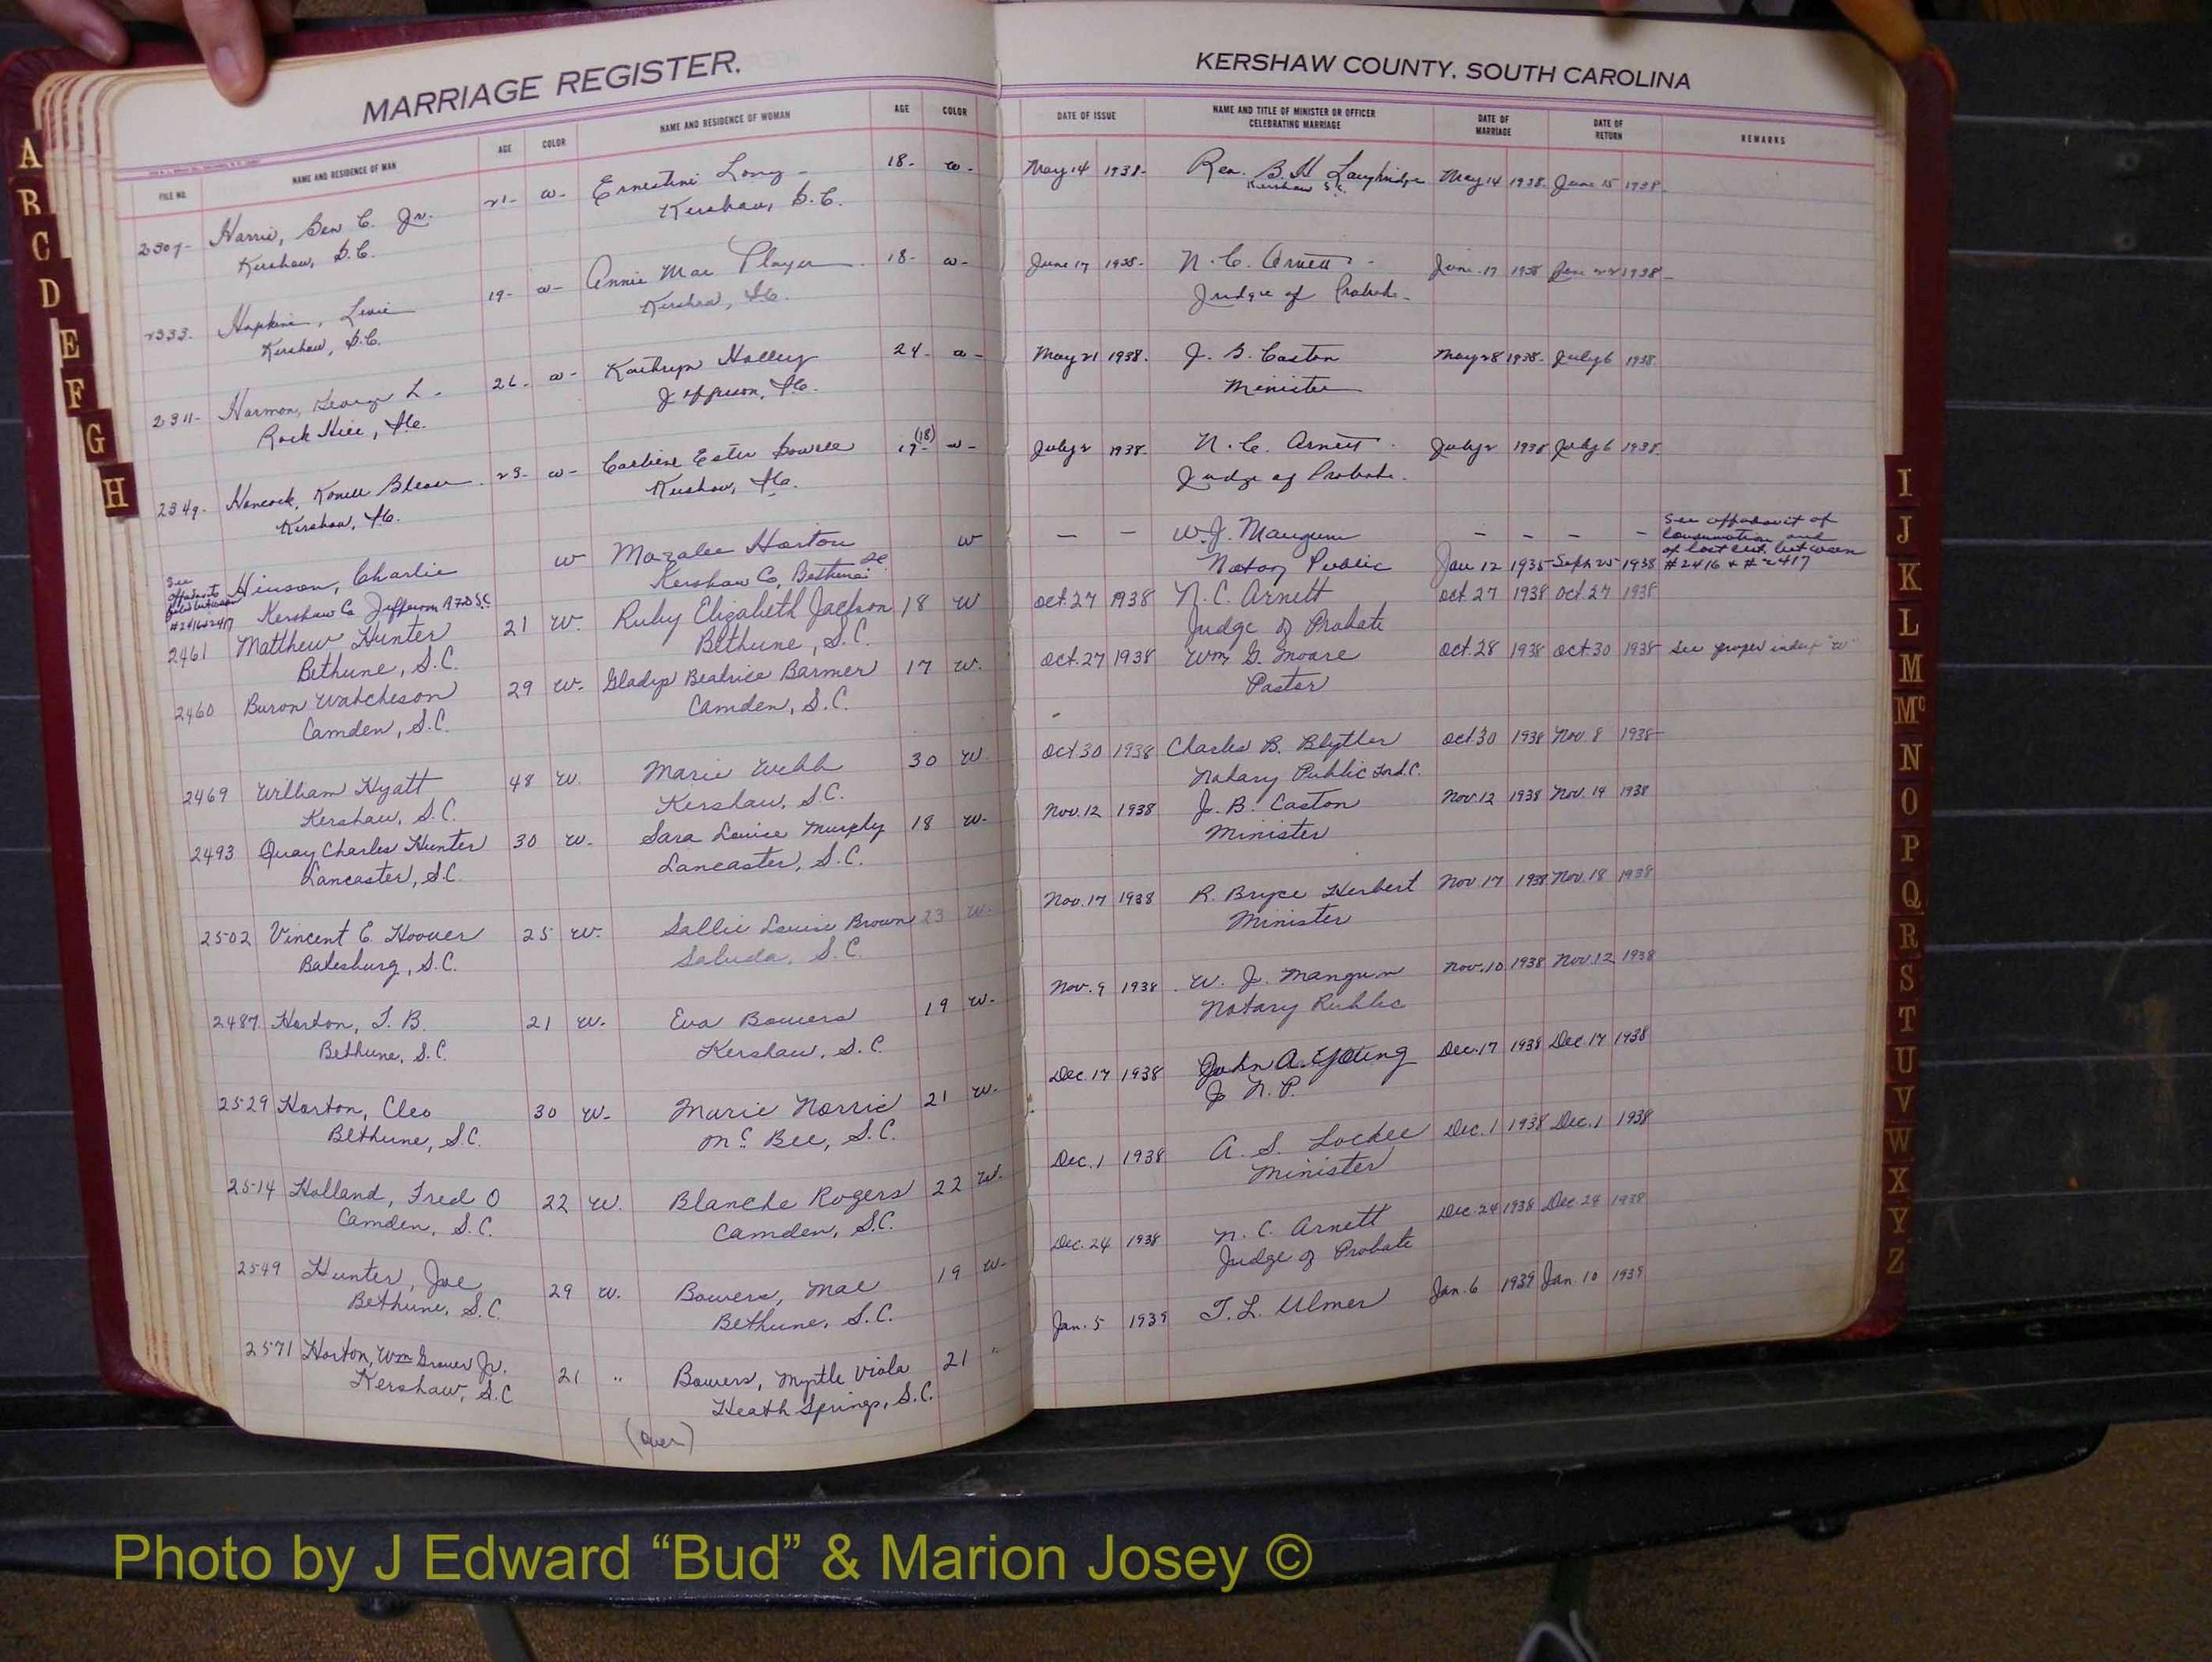 MARRIAGE REGISTER.
FILE NO. NAME AND RESIDENCE OF MAN AGE COLOR NAME AND RESIDENCE OF WOMAN AGE COLOR
2307- Harris, Ben C. Jr. 21- w- Ernestine Long - 18- w-
Kershaw, S.C. Kershaw, S.C.
2333- Hopkins, Levie 19- w- Annie Mae Player 18- w-
Kershaw, S.C. Kershaw, S.C.
2311- Harmon, George L- 26- w- Kathryn Holley 24- w-
Rock Hill, S.C. Jefferson, S.C.
2349- Hancock, 23- w- Ester 17-(18) w-
Kershaw, S.C. Kershaw, S.C.
See Hinson, Charlie w Mozalee Horton w
#2416&2417 Kershaw Co Jefferson RFD S.C. Kershaw Co, Bethune SC
2461 Matthew Hunter 21 W. Ruby Elizabeth Jackson 18 W
Bethune, S.C. Bethune, S.C.
2460 Buron Watcheson 29 W. Gladys Beatrice Barmer 17 W.
Camden, S.C. Camden, S.C.
2469 William Hyatt 48 W. Marie Webb 30 W
Kershaw, S.C. Kershaw, S.C.
2493 Quay Charles Hunter 30 W- Sara Louise Murphy 18 W-
Lancaster, S.C. Lancaster, S.C.
2502 Vincent E. Hoover 25 W. Sallie Louise Brown 23 W-
Batesburg, S.C. Saluda, S.C.
2487 Horton, T. B. 21 W- Eva Bowers 19 W-
Bethune, S.C. Kershaw, S.C.
2529 Horton, Cleo 30 W- Marie Norris 21 W-
Bethune, S.C. Mc Bee, S.C.
2514 Holland, Fred O 22 W. Blanche Rogers 22 W-
Camden, S.C. Camden, S.C.
2549 Hunter, Joe 29 W. Bowers, Mae 19 W-
Bethune, S.C. Bethune, S.C.
2571 Horton, Wm Grover Jr. 21 " Bowers, Myrtle Viola 21 "
Kershaw, S.C Heath Springs, S.C.
(Over)
KERSHAW COUNTY, SOUTH CAROLINA
DATE OF ISSUE NAME AND TITLE OF MINISTER OR OFFICER CELEBRATING MARRIAGE DATE OF MARRIAGE DATE OF RETURN REMARKS
May 14 1938- Rev. B. H. May 14 1938. June 15 1938-
Kershaw S.C.
June 17 1938- N. C. Arnett - June 17 1938 June 22 1938-
Judge of Probate-
May 21 1938. J. B. Caston May 28 1938- July 6 1938.
Minister
July 2 1938- N. C. Arnett July 2 1938 July 6 1938.
Judge of Probate.
— — W. J. Mangum - - - - See affadavit of
Notary Public Jan 12 1935 Sept 25 1938 consumation and
of lost cert. between
#2416 & #2417
Oct. 27 1938 N. C. Arnett Oct. 27 1938 Oct 27 1938
Judge of Probate
Oct. 27 1938 Wm G. Moore Oct. 28 1938 Oct. 30 1938 See proper index "W"
Pastor
Oct 30 1938 Charles B. Blyther Oct 30 1938 Nov. 8 1938
Notary Public for S.C.
Nov. 12 1938 J. B. Caston Nov. 12 1938 Nov. 14 1938
Minister
Nov. 17 1938 R. Bryce Herbert Nov 17 1938 Nov. 18 1938
Minister
Nov. 9 1938 W. J. Mangum Nov. 10 1938 Nov. 12 1938
Notary Public
Dec. 17 1938 John A. Young Dec. 17 1938 Dec 17 1938
J N. P.
Dec. 1 1938 A. S. Lockee Dec. 1 1938 Dec. 1 1938
Minister
Dec. 24 1938 N. C. Arnett Dec. 24 1938 Dec. 24 1938
Judge of Probate
Jan. 5 1939 T. L. Ulmer Jan. 6 1939 Jan. 10 1939
A
B
C
D
E
F
G
H
I
J
K
L
M
Mc
N
O
P
Q
R
S
T
U
V
W
X
Y
Z
Photo by J Edward “Bud” & Marion Josey ©